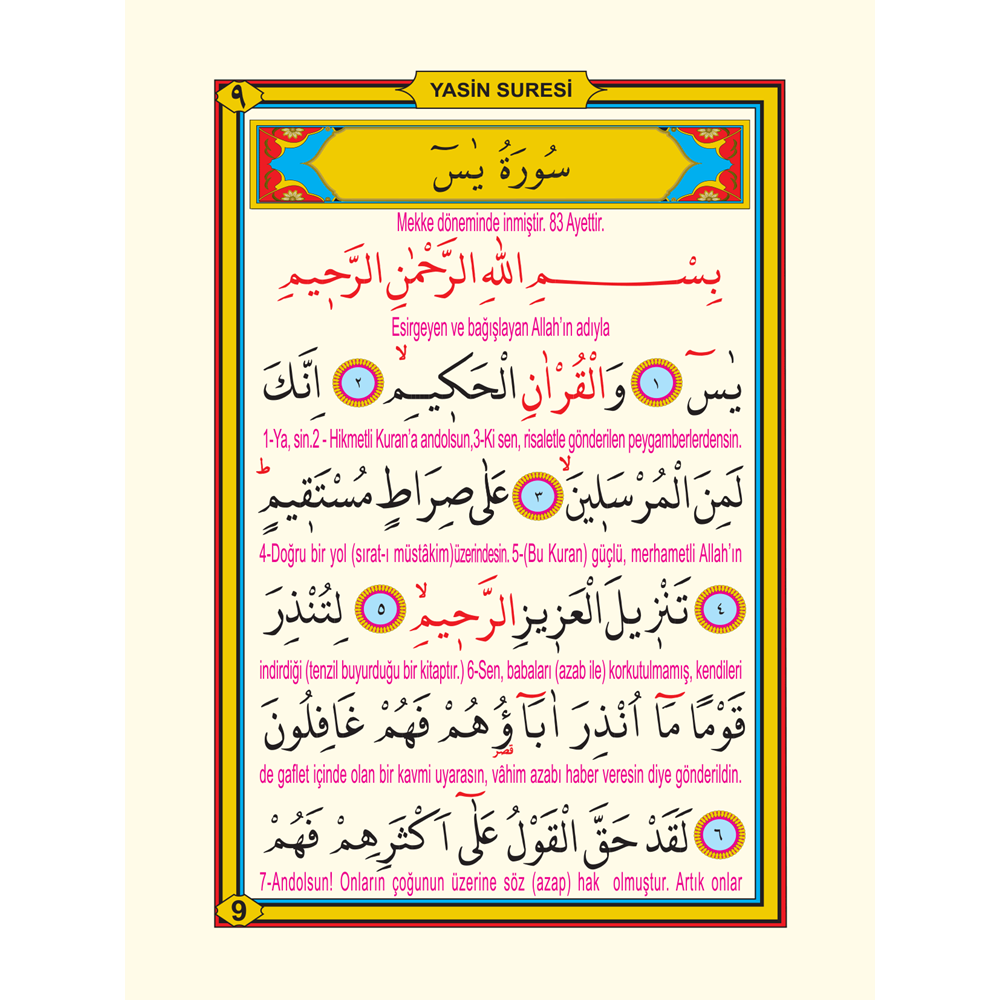 ٩
YASİN SURESİ
سُورَةُ يٰسٓ
Mekke döneminde inmiştir. 83 Ayettir.
بِسْمِ اللهِ الرَّحْمٰنِ الرَّحٖيمِ
Esirgeyen ve bağışlayan Allah’ın adıyla
يٰسٓ ١ وَالْقُرْاٰنِ الْحَكٖيمِۙ ٢ اِنَّكَ
1-Ya, sin.2 - Hikmetli Kuran’a andolsun,3-Ki sen, risaletle gönderilen peygamberlerdensin.
لَمِنَ الْمُرْسَلٖينَۙ ٣ عَلٰى صِرَاطٍ مُسْتَقٖيمٍؕ
4-Doğru bir yol (sırat-ı müstâkim)üzerindesin. 5-(Bu Kuran) güçlü, merhametli Allah’ın
٤ تَنْزٖيلَ الْعَزٖيزِ الرَّحٖيمِۙ ٥ لِتُنْذِرَ
indirdiği (tenzil buyurduğu bir kitaptır.) 6-Sen, babaları (azab ile) korkutulmamış, kendileri
قَوْمًا مَٓا اُنْذِرَ اٰبَٓاؤُهُمْ فَهُمْ غَافِلُونَ
قصر
de gaflet içinde olan bir kavmi uyarasın, vâhim azabı haber veresin diye gönderildin.
٦ لَقَدْ حَقَّ الْقَوْلُ عَلٰٓى اَكْثَرِهِمْ فَهُمْ
7-Andolsun! Onların çoğunun üzerine söz (azap) hak olmuştur. Artık onlar
9